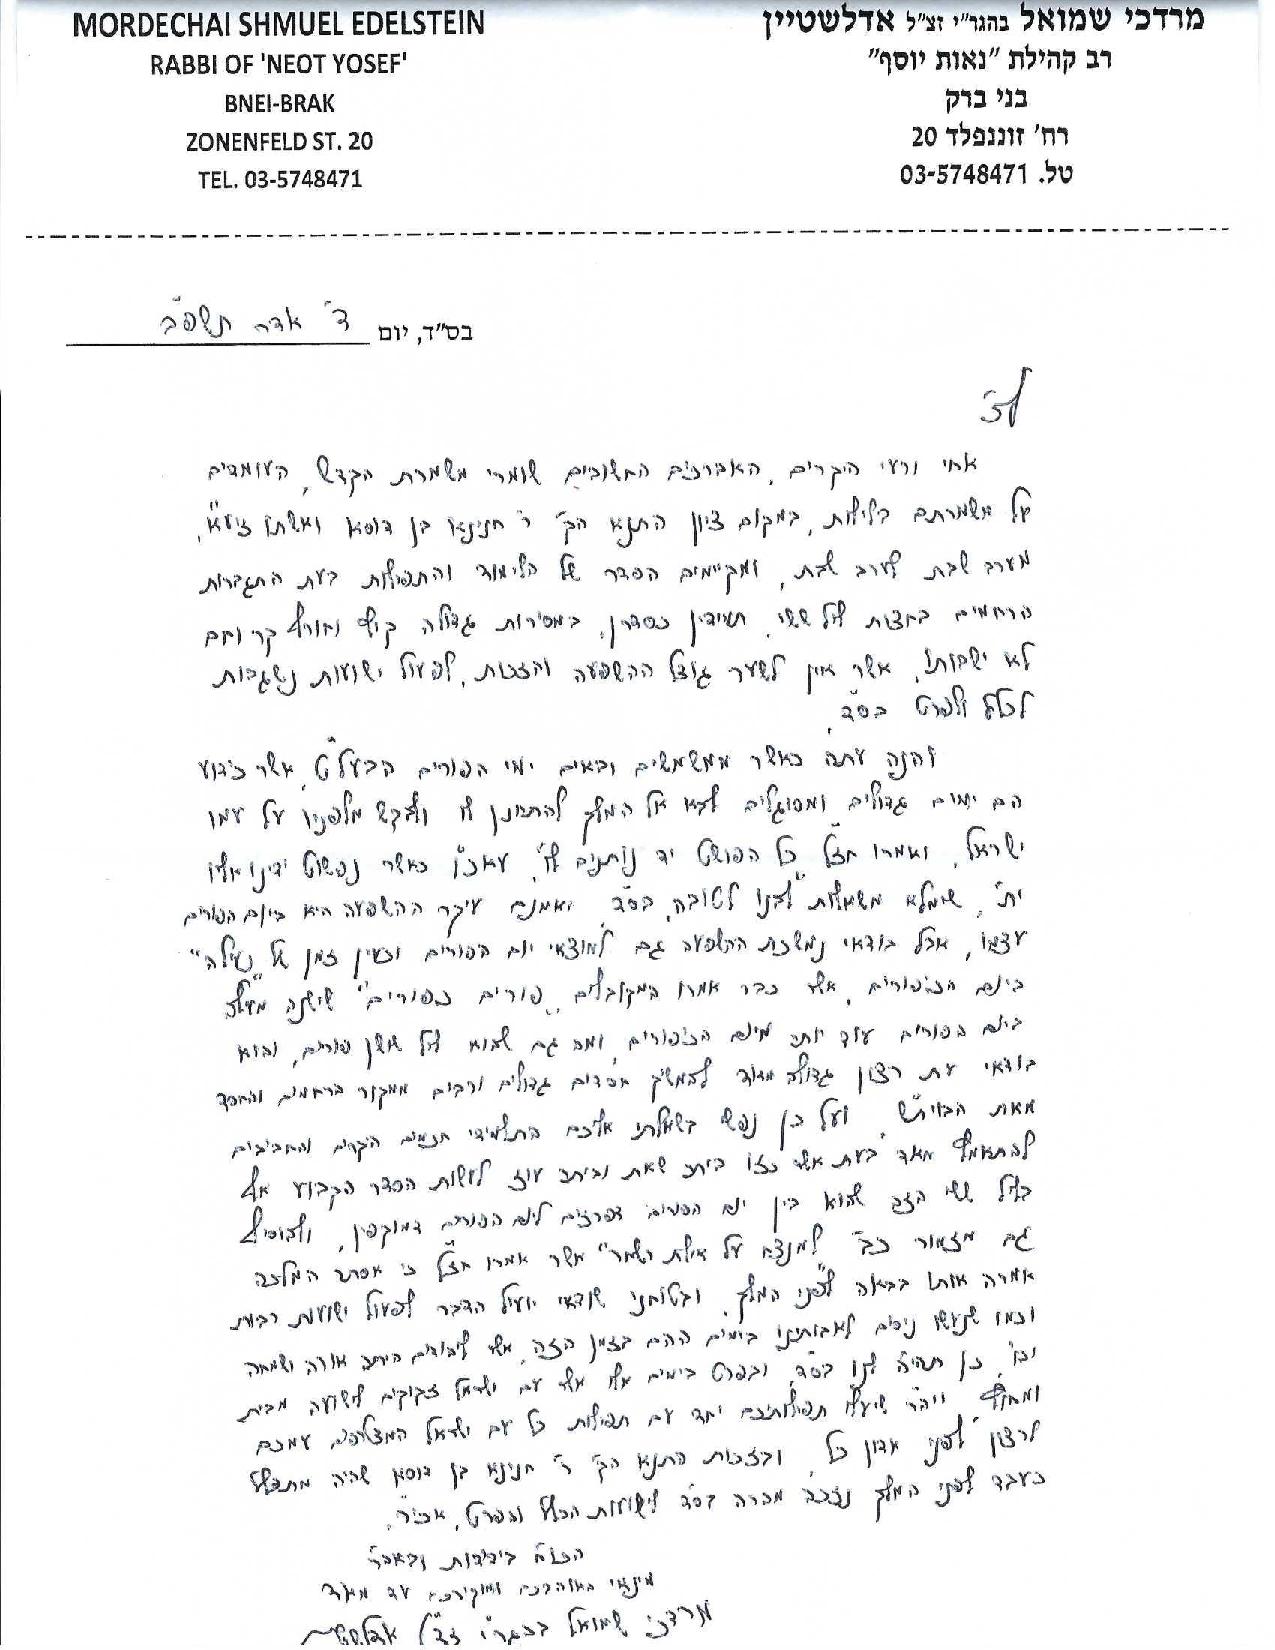 MORDECHAI SHMUEL EDELSTEIN
RABBI OF 'NEOT YOSEF'
BNEI-BRAK
ZONENFELD ST. 20
TEL. 03-5748471
מרדכי שמואל בהגר"י זצ"ל אדלשטיין
רב קהילת "נאות יוסף"
בני ברק
רח' זוננפלד 20
טל. 03-5748471
בס"ד, יום ד' אדר תשפ"ב
אחי ורעי היקרים, האברכים החשובים שומרי משמרת הקדש, העומדים
על משמרתם בלילות, במקום ציון התנא הק' ר' חנינא בן דוסא ואשתו זיע"א,
מערב שבת לערב שבת, ומקיימים הסדר של הלימוד והתפילות בעת התגברות
הרחמים בחצות ליל ששי, תמידין כסדרן, במסירות גדולה קיץ וחורף קר וחם
לא ישבותו, אשר אין לשער גודל ההשפעה והזכות, לפעול ישועות נשגבות
לכלל ולפרט בס"ד.
והנה עתה כאשר ממשמשים ובאים ימי הפורים הבעל"ט, אשר כידוע
הם ימים גדולים ומסוגלים לבא אל המלך להתחנן לו ולבקש מלפניו על עמו
ישראל, ואמרו חז"ל כל הפושט יד נותנים לו, עאכ"ו כאשר נפשוט ידינו אליו
ית', שימלא משאלות לבנו לטובה, בס"ד, ואמנם עיקר ההשפעה היא ביום הפורים
עצמו, אבל בודאי נמשכת ההשפעה גם למוצאי יום הפורים וכעין זמן של "נעילה"
ביום הכיפורים, אשר כבר אמרו המקובלים "פורים כפורים" שישנה מעלה
ביום הפורים עוד יותר מיום הכיפורים, ומה גם שהוא ליל שושן פורים, והוא
בודאי עת רצון גדולה מאוד להמשיך חסדים גדולים ורבים ממקור הרחמים והחסד
מאת הבוי"ת ועל כן נפשי בשאלתי אליכם התלמידי חכמים היקרים והחביבים
להתאמץ מאד בעת אשר כזו ביתר שאת וביתר עוז לעשות הסדר הקבוע אף
בליל ששי הזה שהוא בין יום הפורים דפרזים ליום הפורים דמוקפין, ולהוסיף
גם מזמור כב' "למנצח על אילת השחר" אשר אמרו חז"ל כי אסתר המלכה
אמרה אותו בבואה לפני המלך, ובטוחני שודאי יועיל הדבר לפעול ישועות רבות
וכמו שנעשו ניסים לאבותינו בימים ההם בזמן הזה, אשר ליהודים היתה אורה ושמחה
וכו', כן תהיה לנו בס"ד, ובפרט בימים אלו אשר עם ישראל זקוקים לישועה מבית
ומחוץ, ויה"ר שיעלו תפילותיכם יחד עם תפילות כל עם ישראל המצטרפים עמכם
לרצון לפני אדון כל, ובזכות התנא הק' ר' חנינא בן דוסא שהיה מתפלל
כעבד לפני המלך נזכה מהרה בס"ד לישועות הכלל והפרט, אכי"ר.
הכו"ח בידידות
מינאי באוהבכם ומוקירכם עד מאד
מרדכי שמואל בהגר"י זצ"ל אדלשטיין